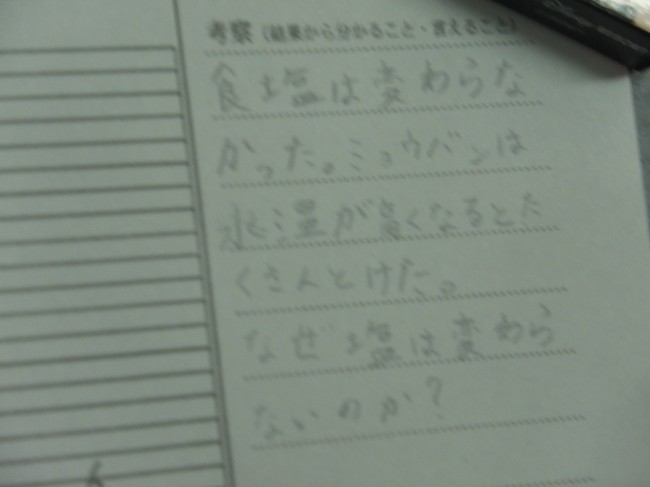 考察（結果から分かること・言えること）
食塩は変わらな
かった。ミョウバンは
水温が高くなるとた
くさんとけた。
なぜ塩は変わら
ないのか？